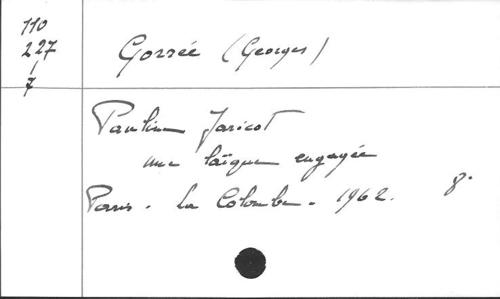 110
227
7
Gorrée (Georges)
Pauline Jaricot
une laïque engagée
Paris - La Colombe - 1962. 8°